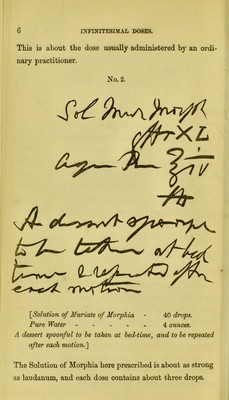 6 INFINITESIMAL DOSES.
This is about the dose usually administered by an ordi-
nary practitioner.
No. 2.
Sol Mur Morph
gtts XL
Aqua Pur ℥ iv
A dessert spoonful
to be taken at bed
time & repeated after
each motion
[Solution of Muriate of Morphia - 40 drops.
Pure Water - - - - - 4 ounces.
A dessert spoonful to be taken at bed-time, and to be repeated
after each motion.]
The Solution of Morphia here prescribed is about as strong
as laudanum, and each dose contains about three drops.